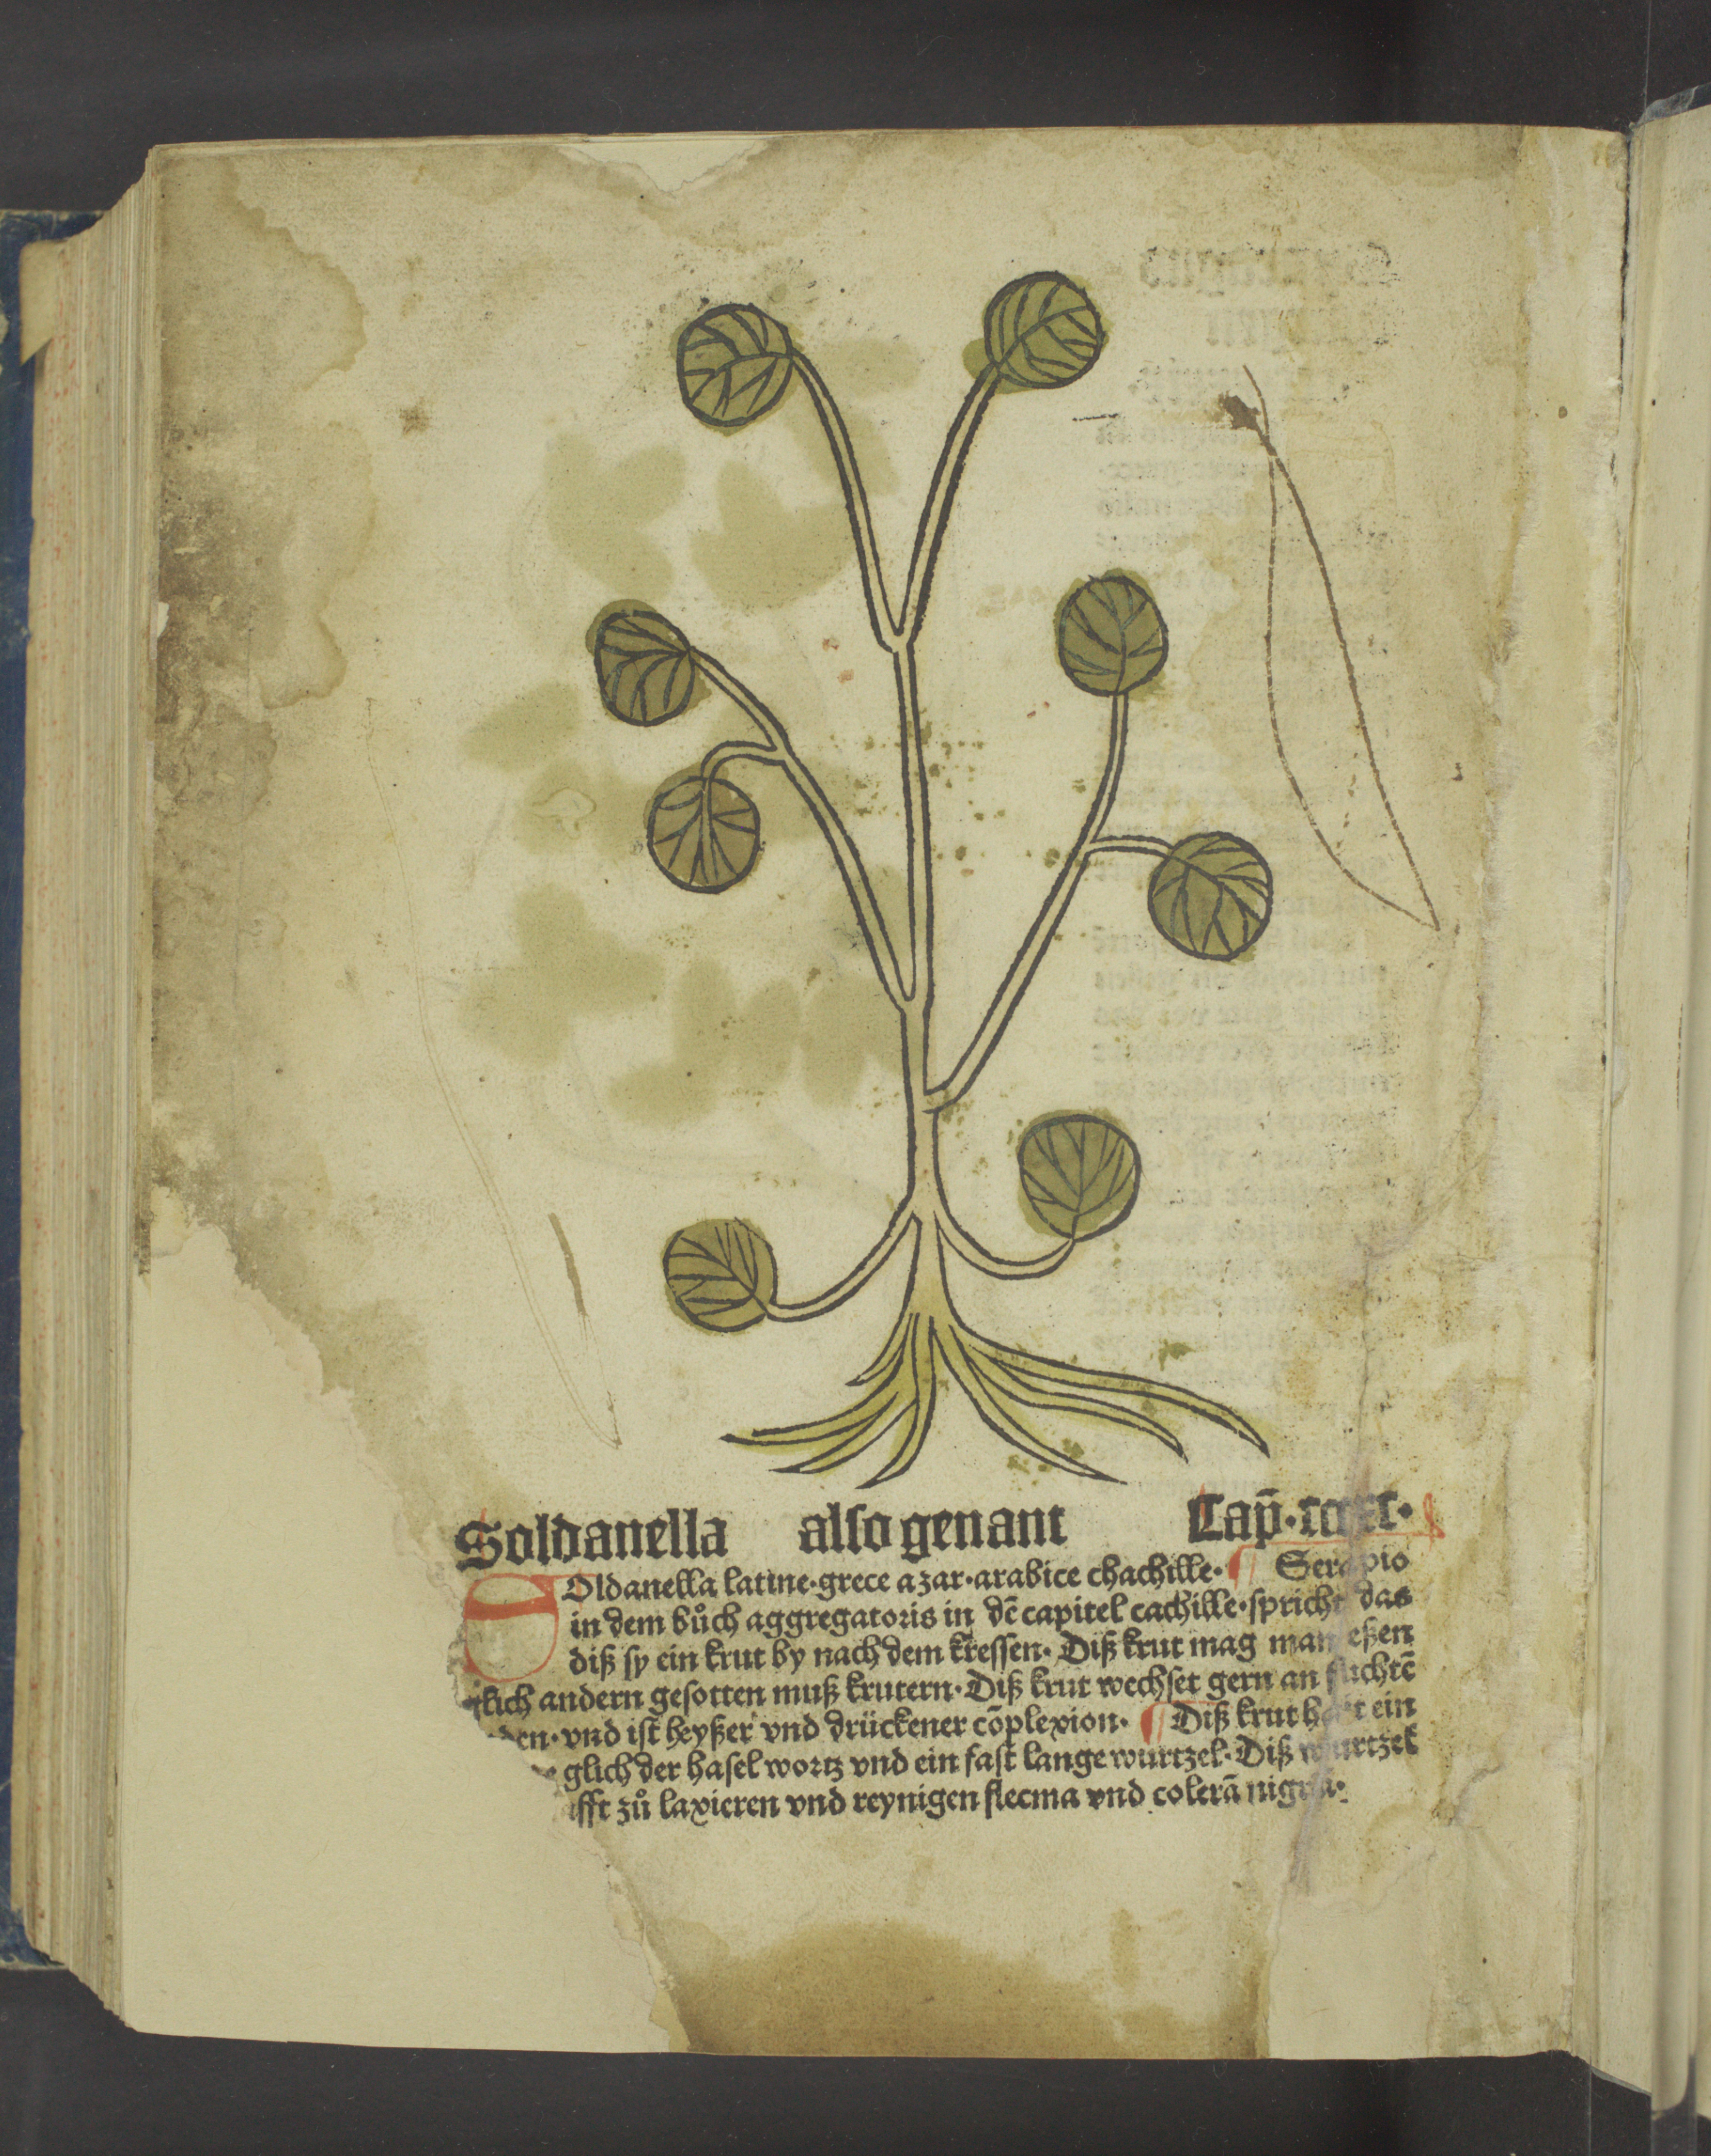 Soldanella also genant Cap̄·
Oldanella latine·grece azar·arabice chachille· Serapio
in dem bůch aggregatoris in dē capitel cachille·spricht das
diß sy ein krut by nach dem kressen· Diß krut mag man eßen
andern gesotten muß krutern· Diß krut wechset gern an fuchtē
vnd ist heyßer vnd drückener cōplexion· Diß krut hait ein
glich der hasel wortz vnd ein fast lange wurtzel· Diß wurtzel
zů laxieren vnd reynigen flecma vnd colerā nigrā·